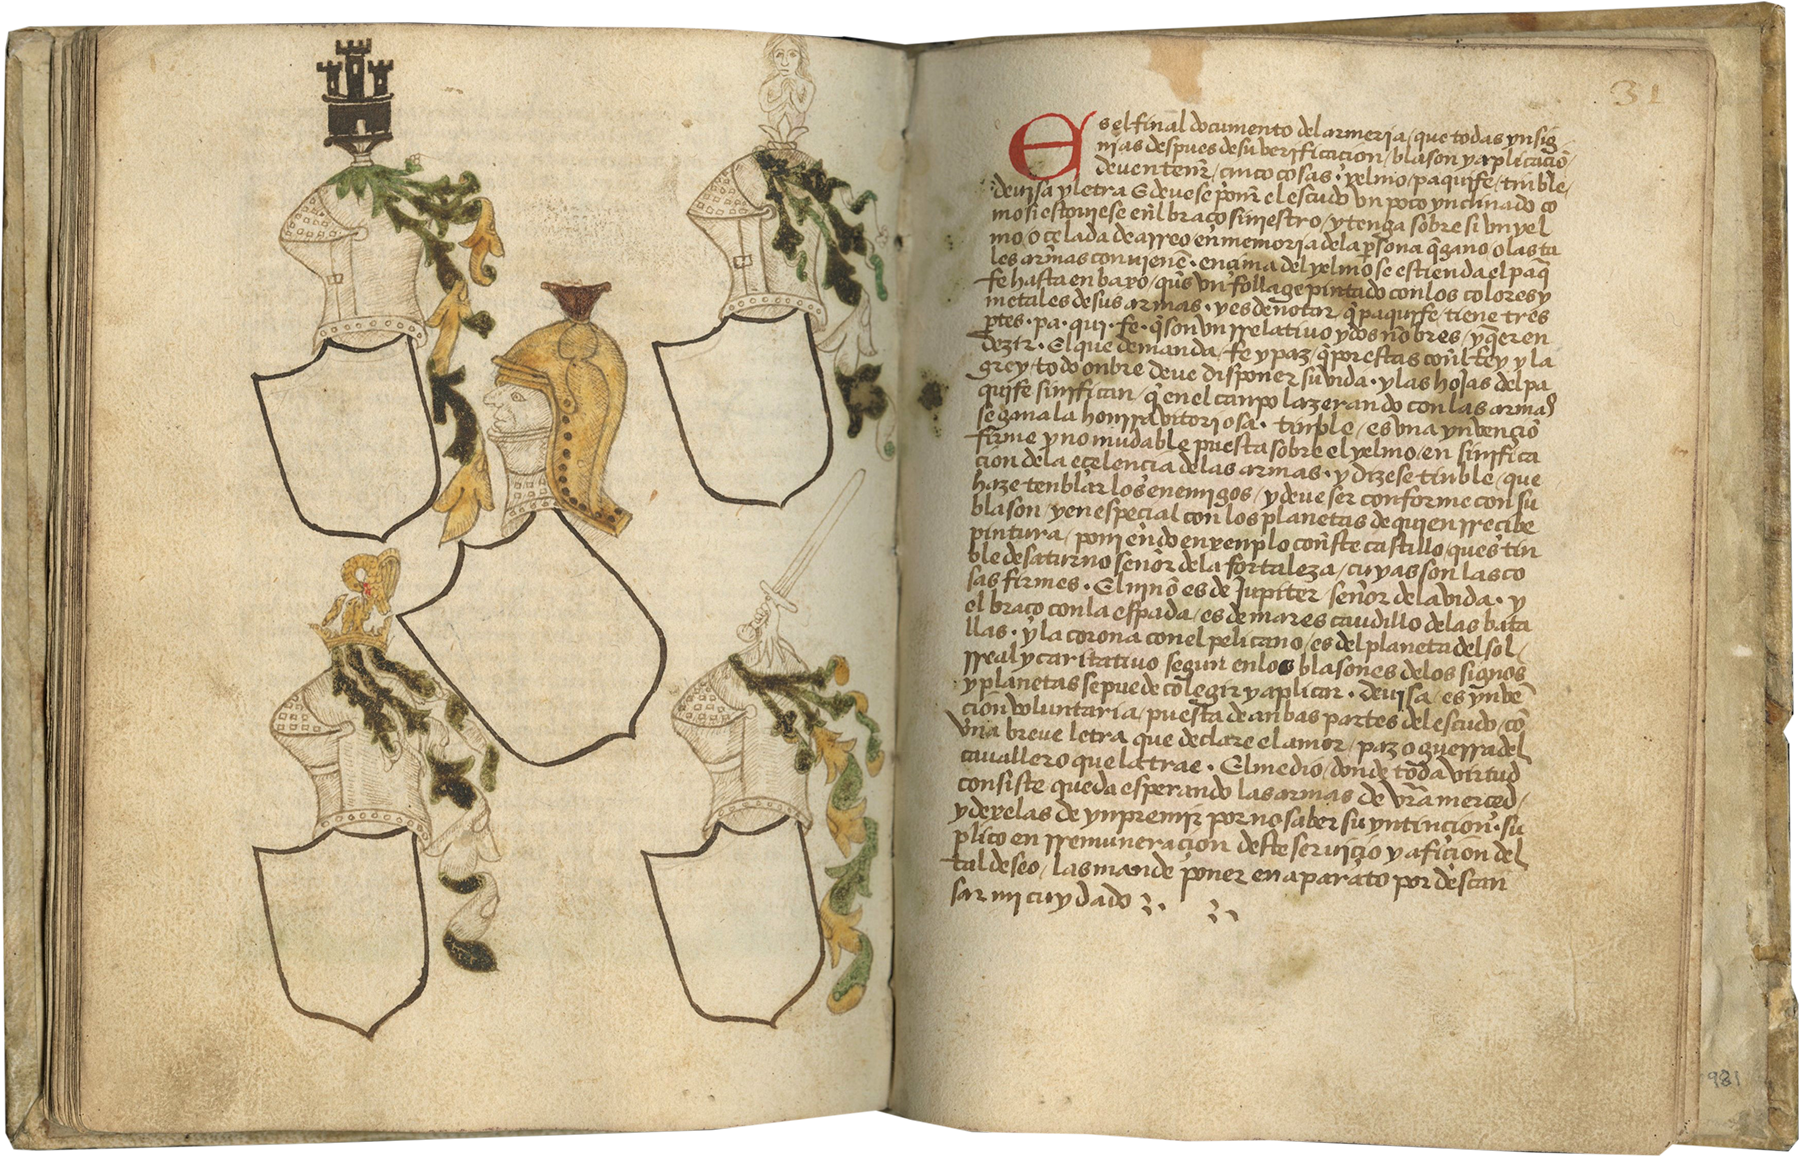 31
Es el final documento del armeria / que todas ynsig
nias despues de su verificacion / blason y aplicaciō /
deven tenr̄ / cinco cosas · yelmo / paquife / tinble /
devisa y letra E deve se ponr̄ el escudo vn poco ynclinado co
mo si estoviese en̄l braço siniestro / y tenga sobre si vn yel
mo / o celada de arreo / en memoria de la p̄sona q̄ gano o las ta
les armas convienē · encima del yelmo se estienda el paq̄
fe hasta en baxo / qu̓s vn follage pintado con los colores y
metales de sus armas · y es de notar / q̄ paquife / tiene tres
p̄tes · pa · qui · fe · q̄ son vn rrelativo y dos nōbres / y q̄eren
dezir · El que demanda / fe y paz / q̄ por estas con̄l rey y la
grey / todo onbre deve disponer su vida · y las hojas del pa
quife sinifican / q̄ en el canpo lazerando con las armas
se gana la honrra vitoriosa · tinble / es vna ynvenciō
firme y no mudable puesta sobre el yelmo / en sinifica
cion de la ecelencia de las armas · y dizese tinble / que
haze tenblar los enemigos / y deve ser conforme con su
blason / y en especial con los planetas de quien rrecibe
pintura / poniendo en yenplo con̄ste castillo / ques tin
ble de saturno señor de la fortaleza / cuyas son las co
sas firmes · El niño es de Jupiter señor de la vida · y
el braço con la espada / es de mares caudillo de las bata
llas · y la corona con el pelicano / es del planeta del sol /
rreal y caritativo segun en los blasones de los signos
y planetas se puede cōlegir y aplicar · devisa / es ynvē
cion voluntaria / puesta de anbas partes del escudo / cō
vna breve letra que declare el amor / paz o guerra del
cavallero que la trae · El medio / donde toda virtud
consiste queda esperando las armas de vr̄a merced /
y dexelas de ynpremir por no saber su yntincion · su
plico en rremuneracion deste servicio y aficion del
tal deseo / las mande poner en aparato por descan
sar mi cuydado
981